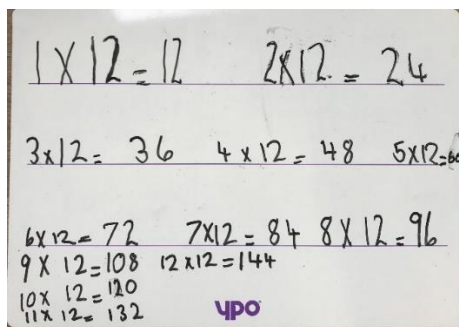 1 x 12 = 12 2x12. = 24
3x12= 36 4 x 12 = 48 5x12=60
6x12= 72 7x12= 84 8 x 12 = 96
9 x 12=108 12x12=144
10x 12=120
11x 12= 132
YPO